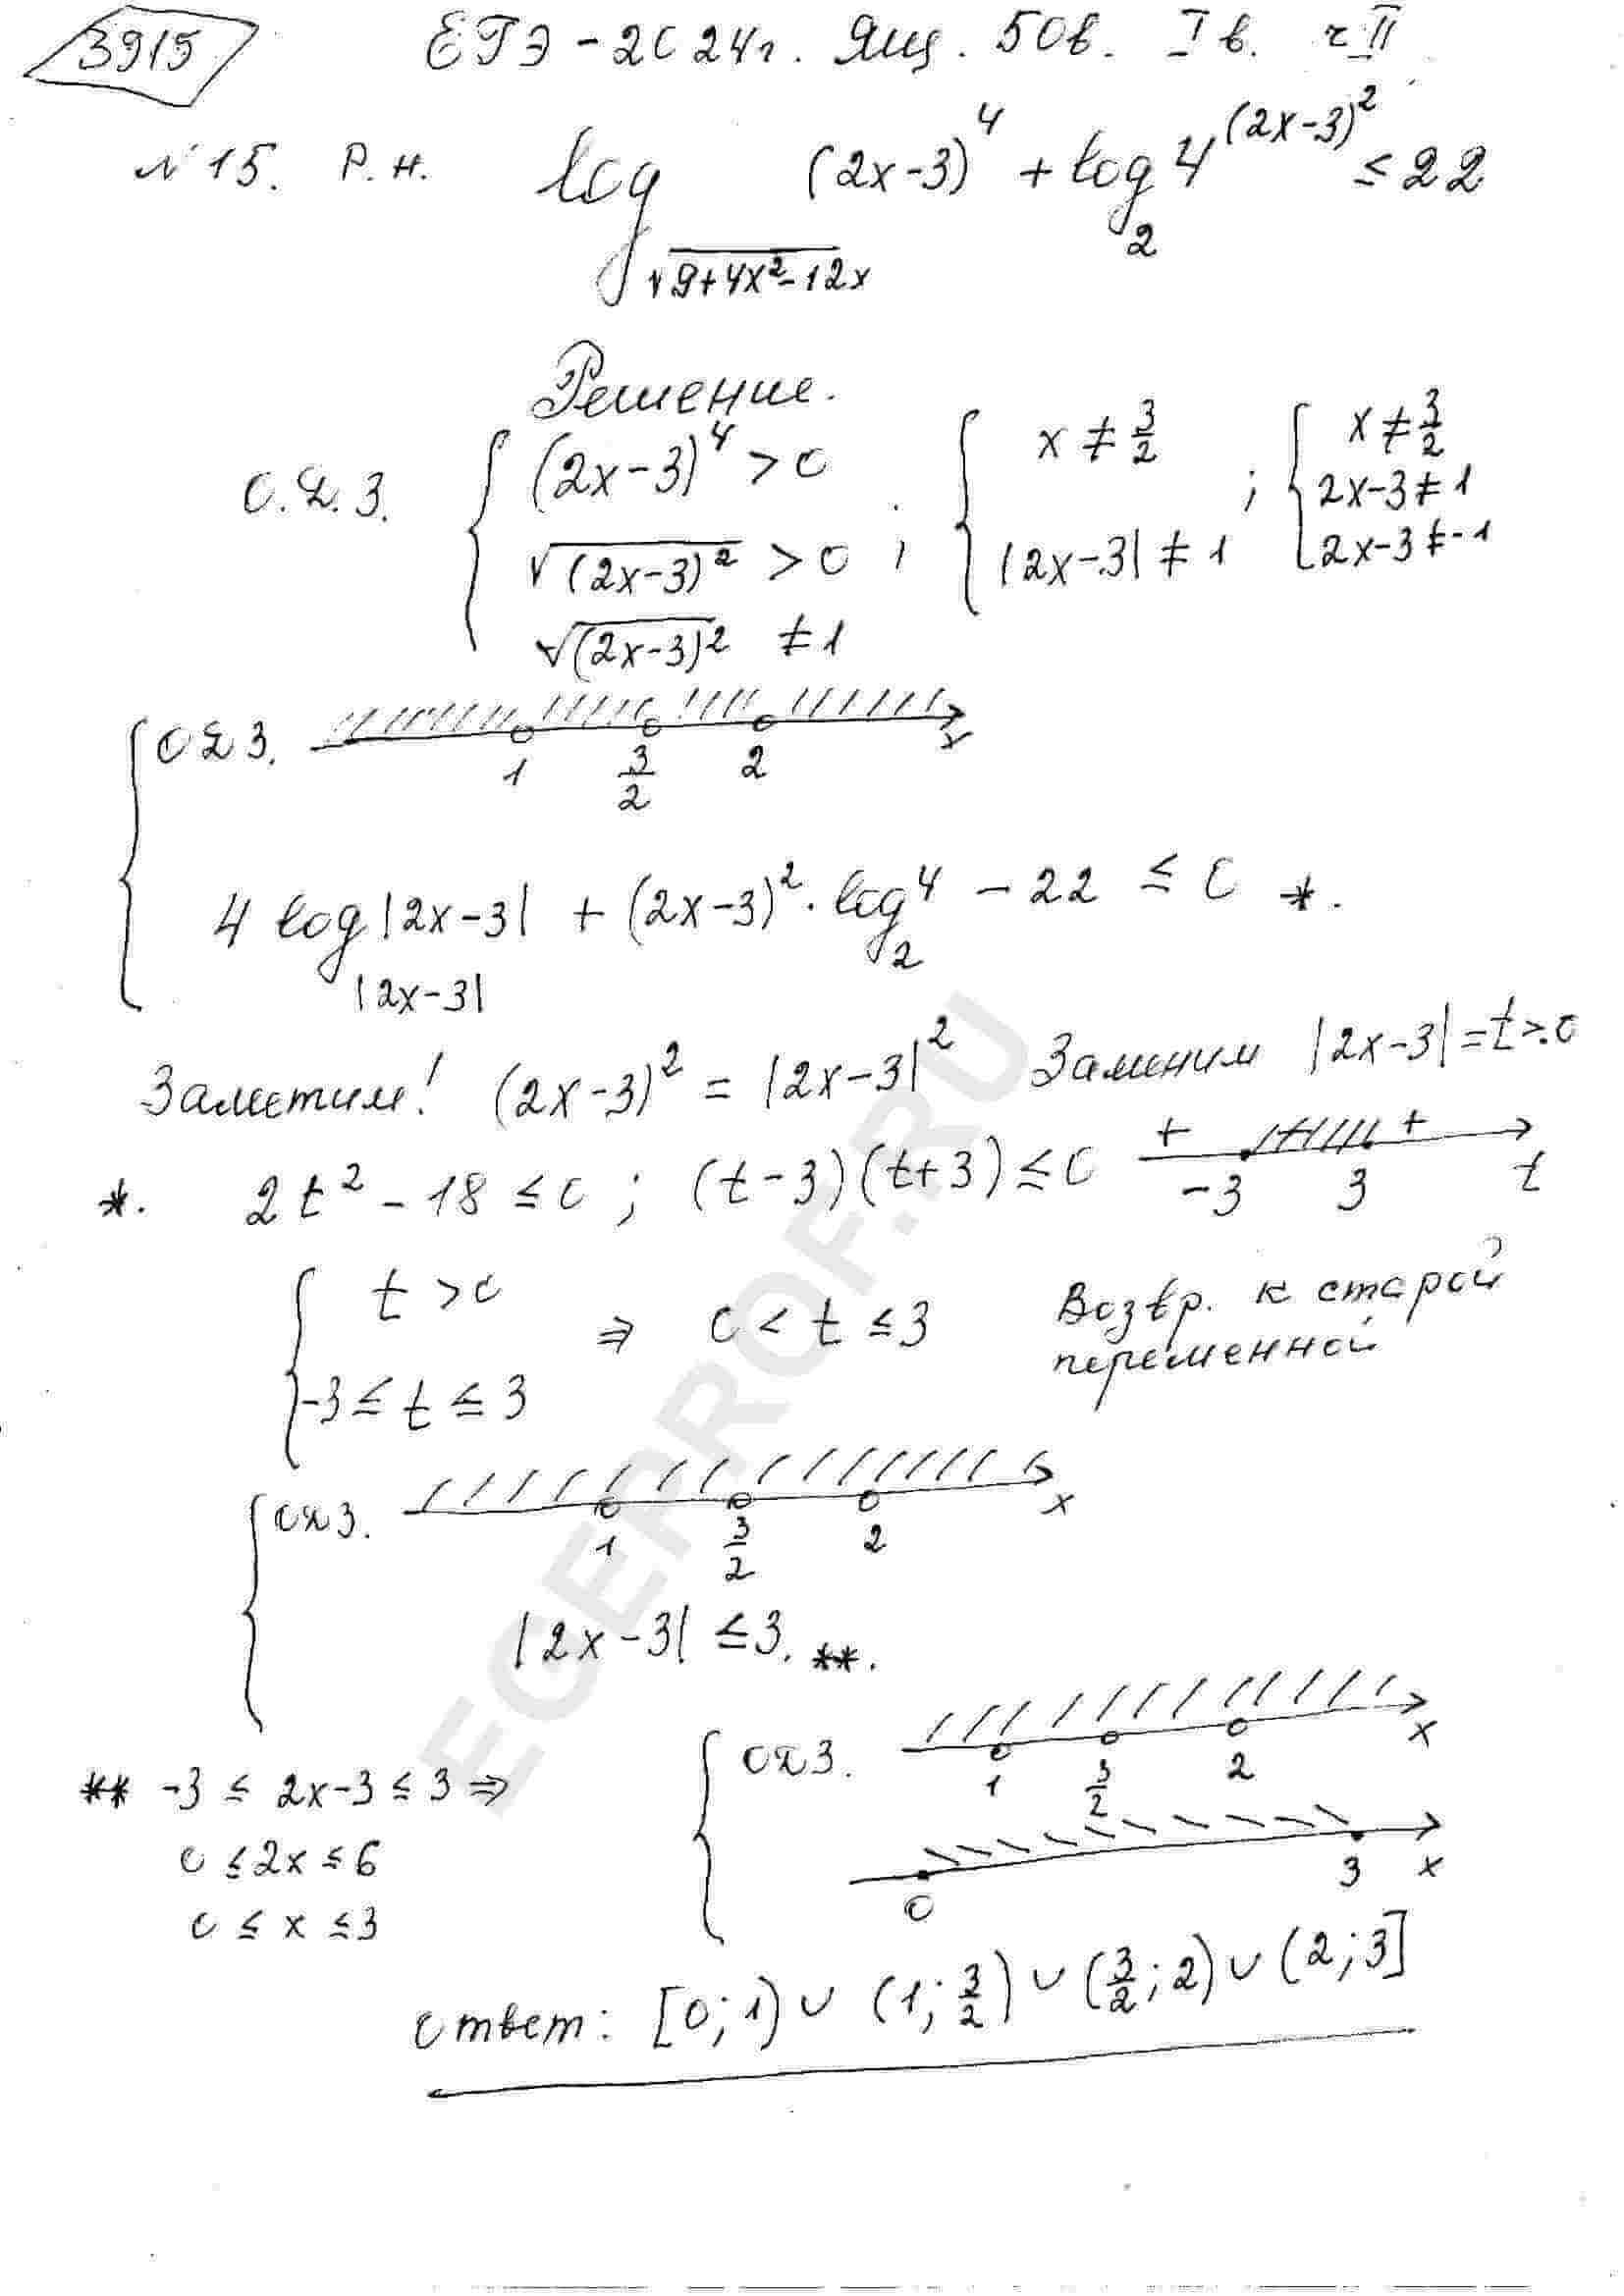 3915 ЕГЭ - 2024г. Ящ. 50в. I в. ч II
№15. Р.н. log_{√(9+4x²-12x)} (2x-3)⁴ + log₂ 4^{(2x-3)²} ≤ 22
Решение.
О.Д.З. { (2x-3)⁴ > 0 ; { x ≠ 3/2 ; { x ≠ 3/2
√(2x-3)² > 0 |2x-3| ≠ 1 2x-3 ≠ 1
√(2x-3)² ≠ 1 2x-3 ≠ -1
{ ОДЗ. 1 3/2 2 x
4 log_{|2x-3|} |2x-3| + (2x-3)² · log₂ 4 - 22 ≤ 0 *.
Заметим! (2x-3)² = |2x-3|² Заменим |2x-3| = t > 0
*. 2t² - 18 ≤ 0 ; (t-3)(t+3) ≤ 0 + -3 + 3 t
{ t > 0 ⇒ 0 < t ≤ 3 Возвр. к старой переменной
-3 ≤ t ≤ 3
{ ОДЗ. 1 3/2 2 x
|2x-3| ≤ 3. **.
** -3 ≤ 2x-3 ≤ 3 ⇒ { ОДЗ. 1 3/2 2 x
0 ≤ 2x ≤ 6 0 3 x
0 ≤ x ≤ 3
ответ: [0; 1) ∪ (1; 3/2) ∪ (3/2; 2) ∪ (2; 3]
EGEPROF.RU